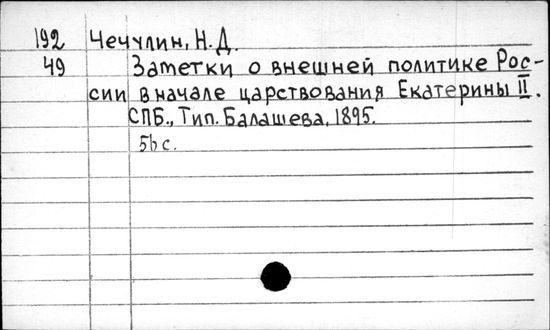 192 Чечулин, Н.Д.
49 Заметки о внешней политике Рос-
сии в начале царствования Екатерины II.
СПБ., Тип. Балашева, 1895.
56 с.